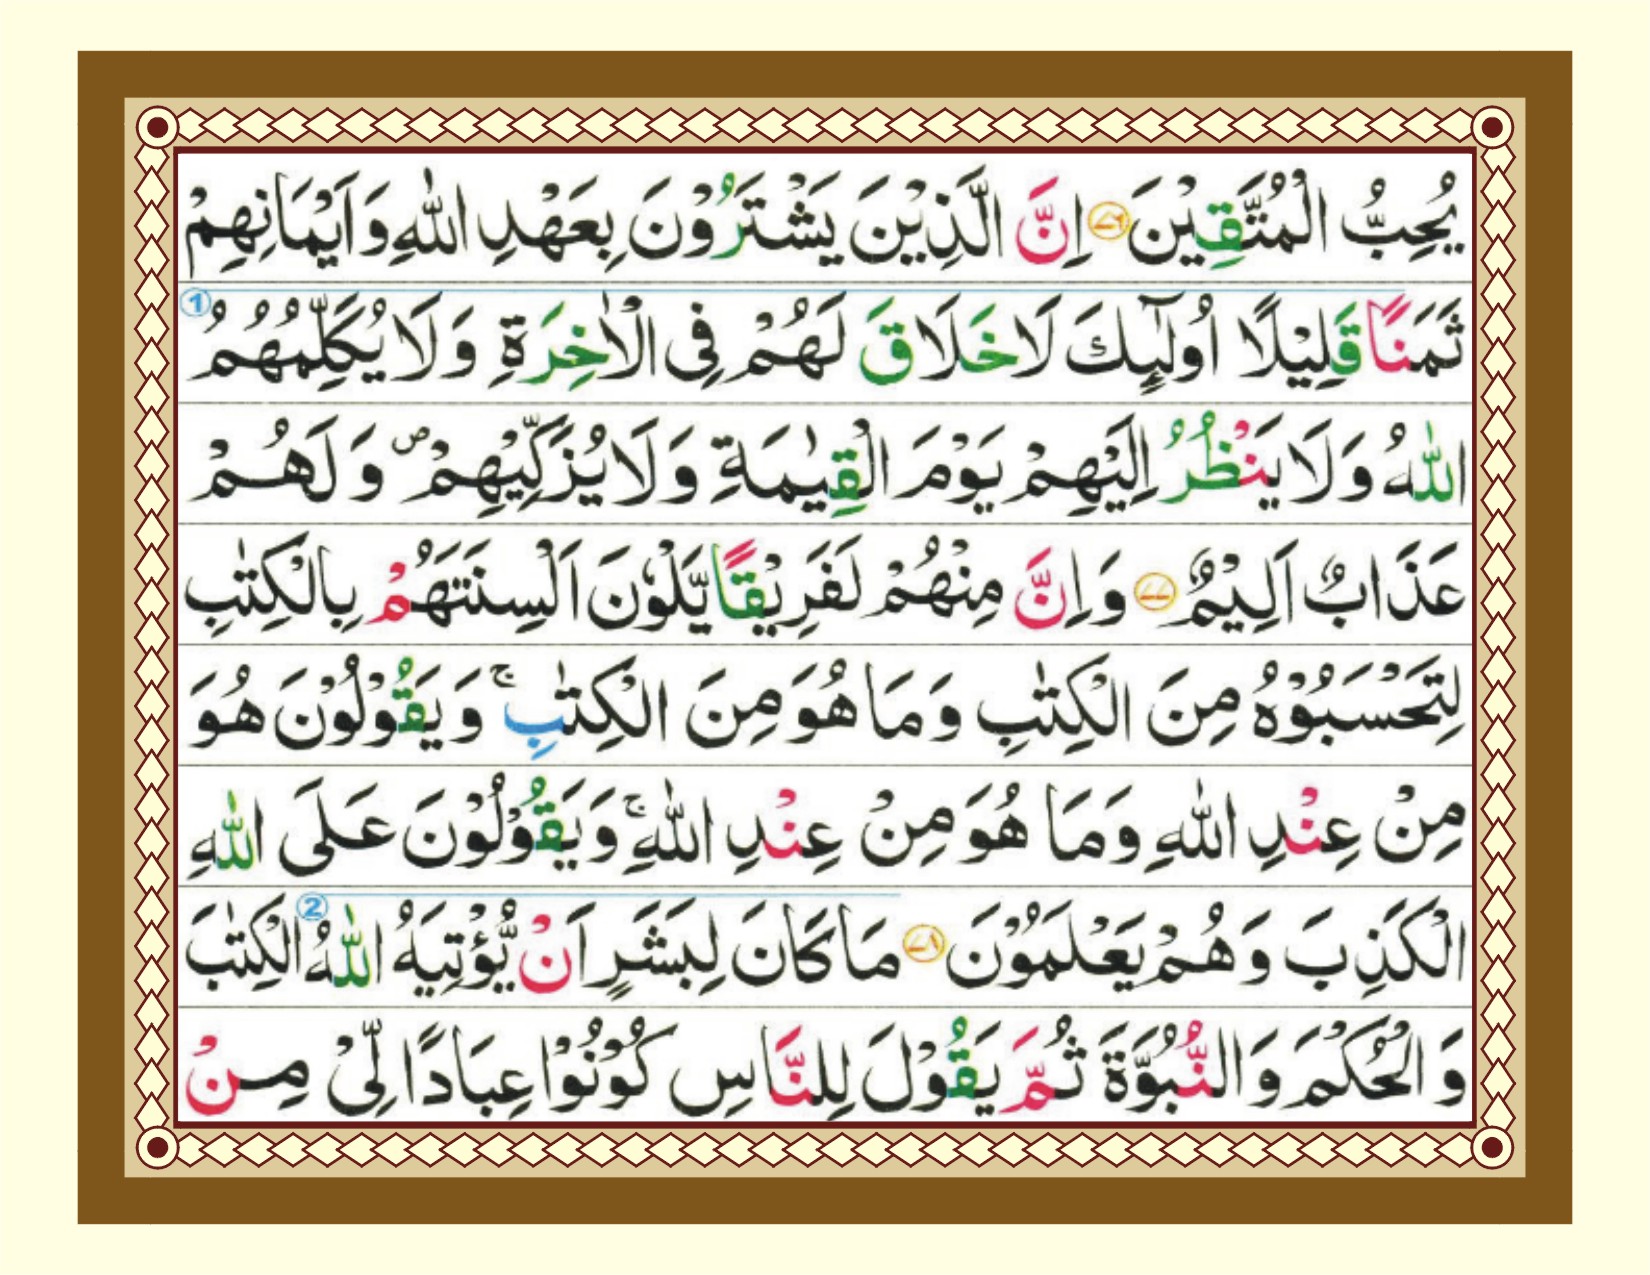 يُحِبُّ الْمُتَّقِيْنَ ﴿۷۶﴾ اِنَّ الَّذِيْنَ يَشْتَرُوْنَ بِعَهْدِ اللّٰهِ وَاَيْمَانِهِمْ
ثَمَنًا قَلِيْلًا اُولٰٓئِكَ لَا خَلَاقَ لَهُمْ فِى الْاٰخِرَةِ وَلَا يُكَلِّمُهُمُ ①
اللّٰهُ وَلَا يَنْظُرُ اِلَيْهِمْ يَوْمَ الْقِيٰمَةِ وَلَا يُزَكِّيْهِمْ ۖ وَلَهُمْ
عَذَابٌ اَلِيْمٌ ﴿۷۷﴾ وَاِنَّ مِنْهُمْ لَفَرِيْقًا يَّلْوٗنَ اَلْسِنَتَهُمْ بِالْكِتٰبِ
لِتَحْسَبُوْهُ مِنَ الْكِتٰبِ وَمَا هُوَ مِنَ الْكِتٰبِ ۚ وَيَقُوْلُوْنَ هُوَ
مِنْ عِنْدِ اللّٰهِ وَمَا هُوَ مِنْ عِنْدِ اللّٰهِ ۚ وَيَقُوْلُوْنَ عَلَى اللّٰهِ
الْكَذِبَ وَهُمْ يَعْلَمُوْنَ ﴿۷۸﴾ مَا كَانَ لِبَشَرٍ اَنْ يُّؤْتِيَهُ اللّٰهُ ② الْكِتٰبَ
وَالْحُكْمَ وَالنُّبُوَّةَ ثُمَّ يَقُوْلَ لِلنَّاسِ كُوْنُوْا عِبَادًا لِّىْ مِنْ